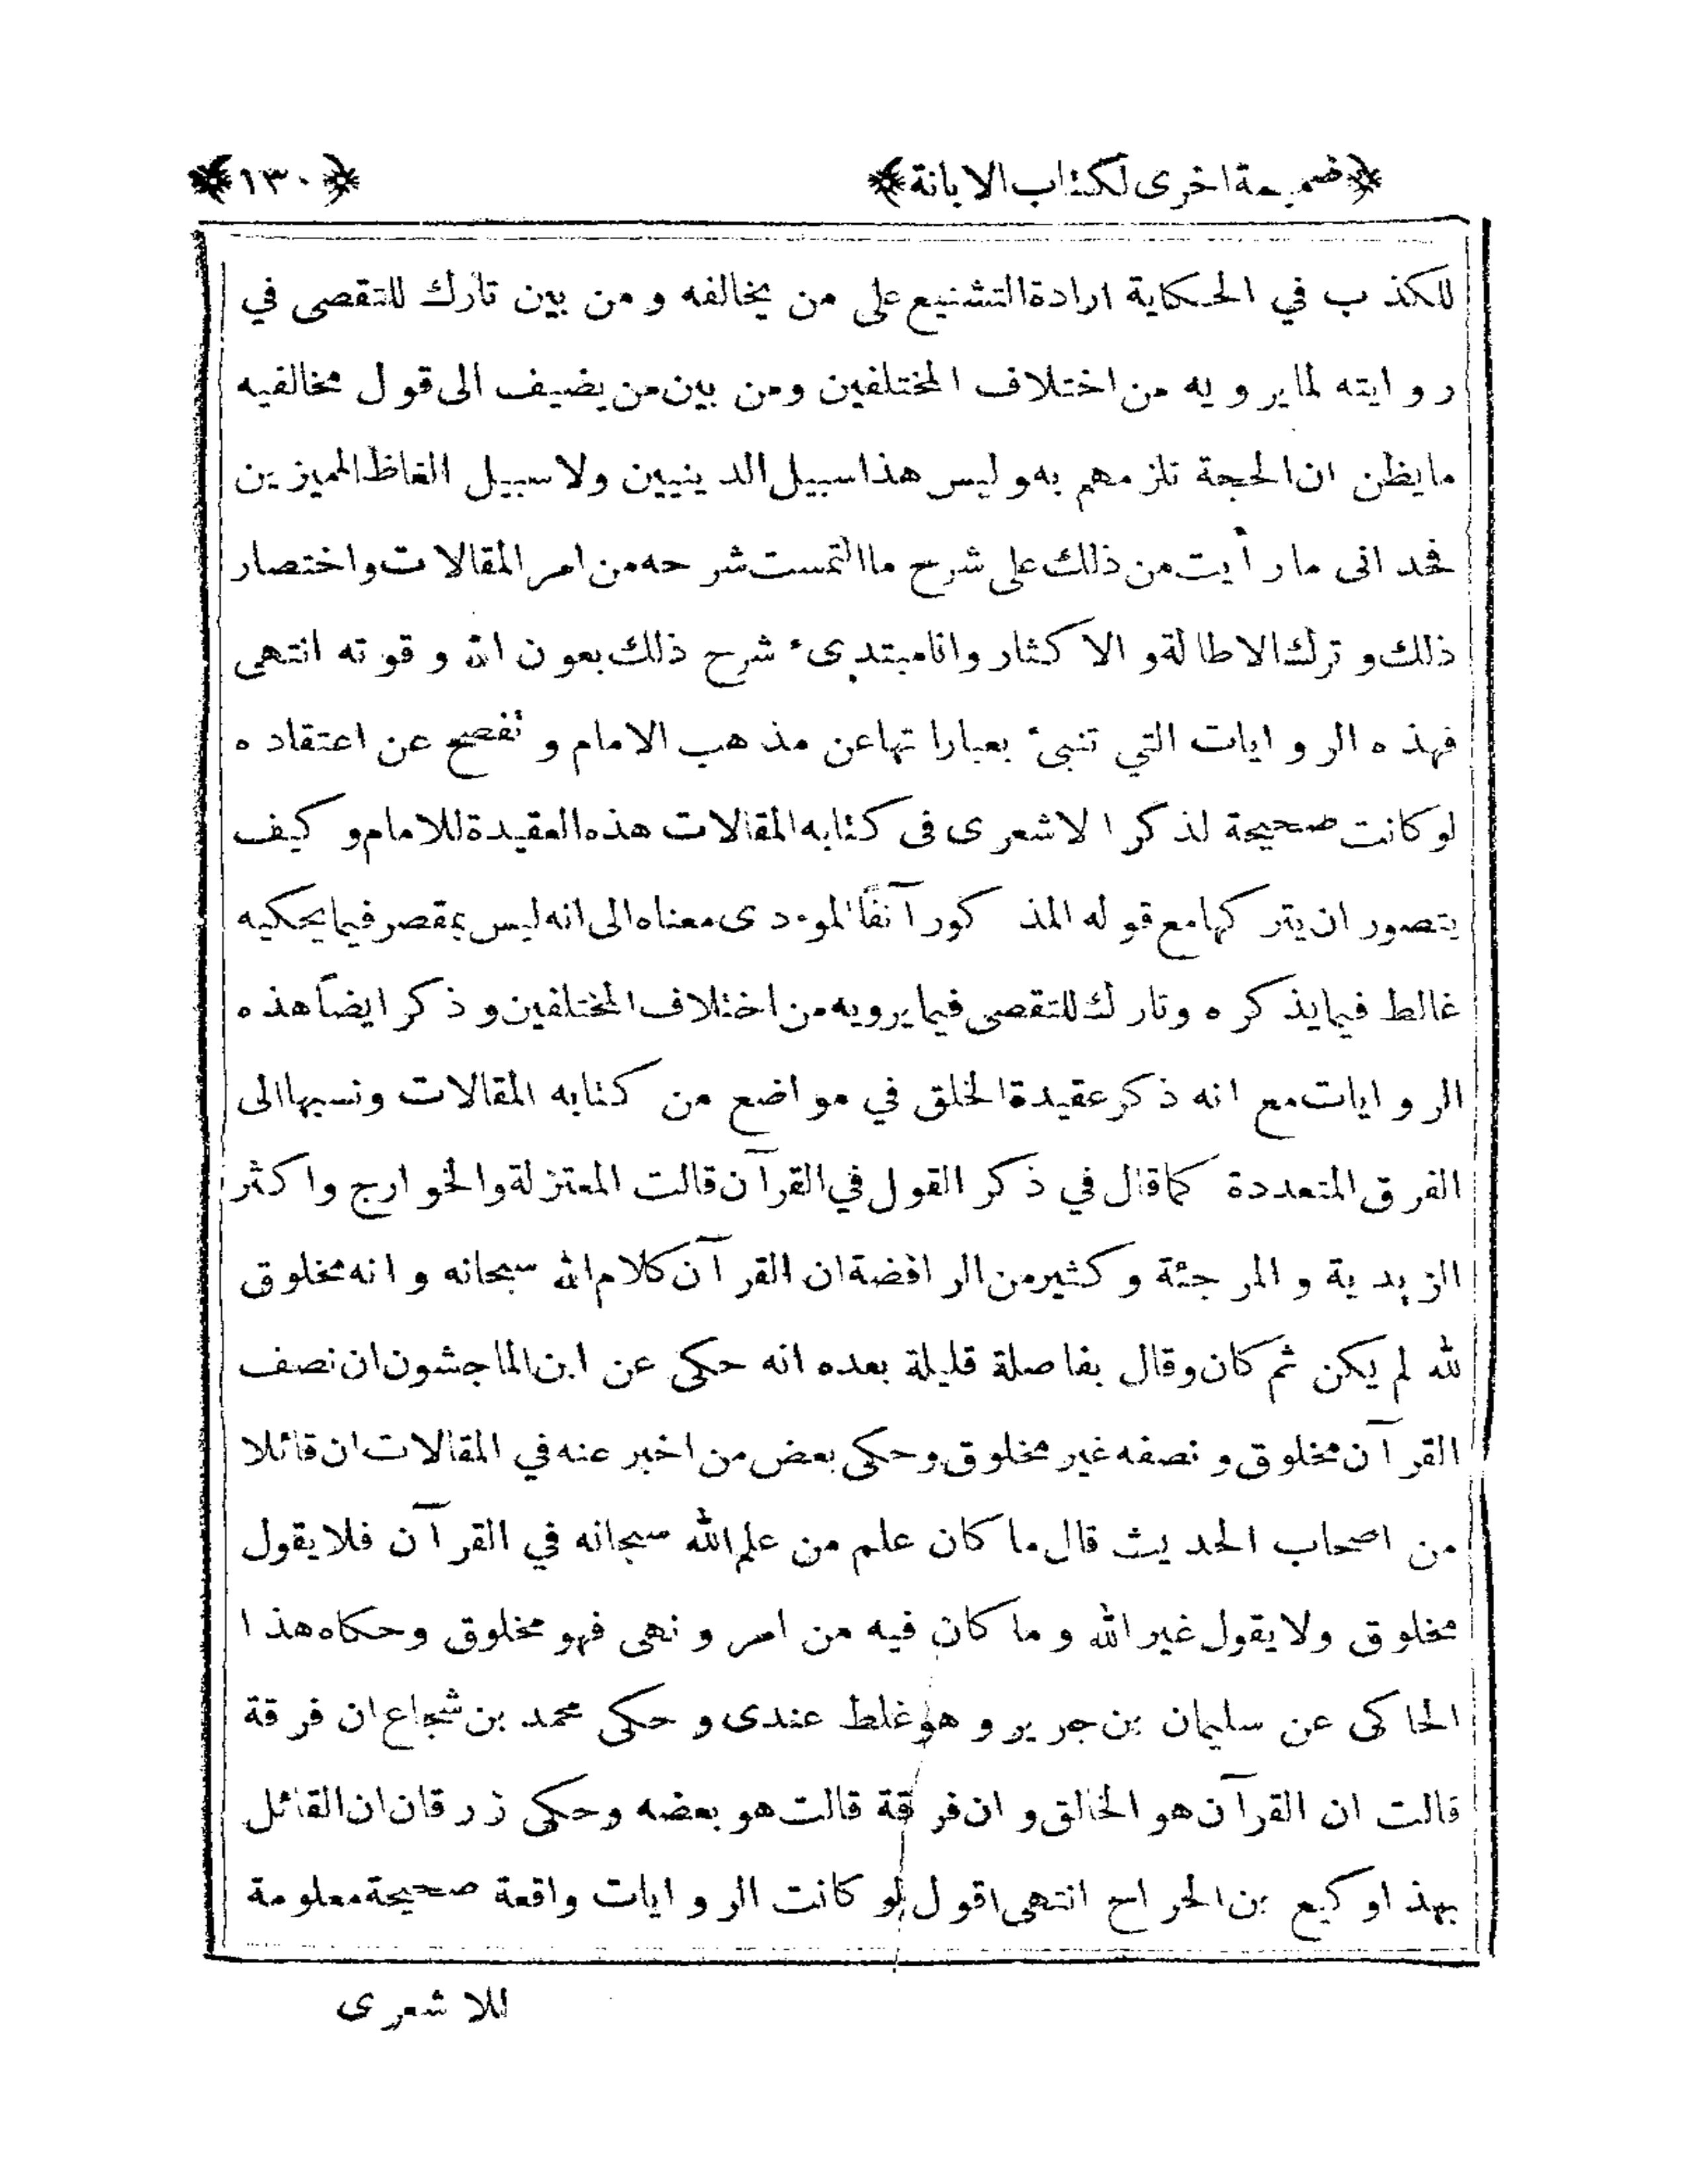 ﴿ضميمة اخرى لكتاب الابانة﴾ ﴿١٣٠﴾
للكذب في الحكاية ارادة التشنيع على من يخالفه و من بين تارك للتقصى في
روايته لما يرويه من اختلاف المختلفين ومن بين من يضيف الى قول مخالفيه
ما يظن ان الحجة تلزمهم به و ليس هذا سبيل الدينيين ولا سبيل الفاظ المميزين
فحدانى ما رأيت من ذلك على شرح ما التمست شرحه من امر المقالات واختصار
ذلك و ترك الاطالة و الاكثار وانا مبتدىء شرح ذلك بعون الله و قوته انتهى
فهذه الروايات التي تنبىء بعباراتها عن مذهب الامام و تفصح عن اعتقاده
لو كانت صحيحة لذكر الاشعرى فى كتابه المقالات هذه العقيدة للامام و كيف
يتصور ان يتركها مع قوله المذكور آنفاً المو٠دى معناه الى انه ليس بمقصر فيما يحكيه
غالط فيما يذكره وتارك للتقصى فيما يرويه من اختلاف المختلفين و ذكر ايضاً هذه
الروايات مع انه ذكر عقيدة الخلق في مواضع من كتابه المقالات ونسبها الى
الفرق المتعددة كما قال في ذكر القول في القرآن قالت المعتزلة والخوارج واكثر
الزيدية و المرجئة و كثير من الرافضة ان القرآن كلام الله سبحانه و انه مخلوق
لله لم يكن ثم كان وقال بفاصلة قليلة بعده انه حكى عن ابن الماجشون ان نصف
القرآن مخلوق و نصفه غير مخلوق و حكى بعض من اخبر عنه في المقالات ان قائلا
من اصحاب الحديث قال ما كان علم من علم الله سبحانه في القرآن فلا يقول
مخلوق ولا يقول غير الله و ما كان فيه من امر و نهى فهو مخلوق وحكاه هذا
الحاكى عن سليمان بن جرير و هو غلط عندى و حكى محمد بن شجاع ان فرقة
قالت ان القرآن هو الخالق و ان فرقة قالت هو بعضه وحكى زرقان ان القائل
بهذا وكيع بن الجراح انتهى اقول لو كانت الروايات واقعة صحيحة معلومة
للاشعرى